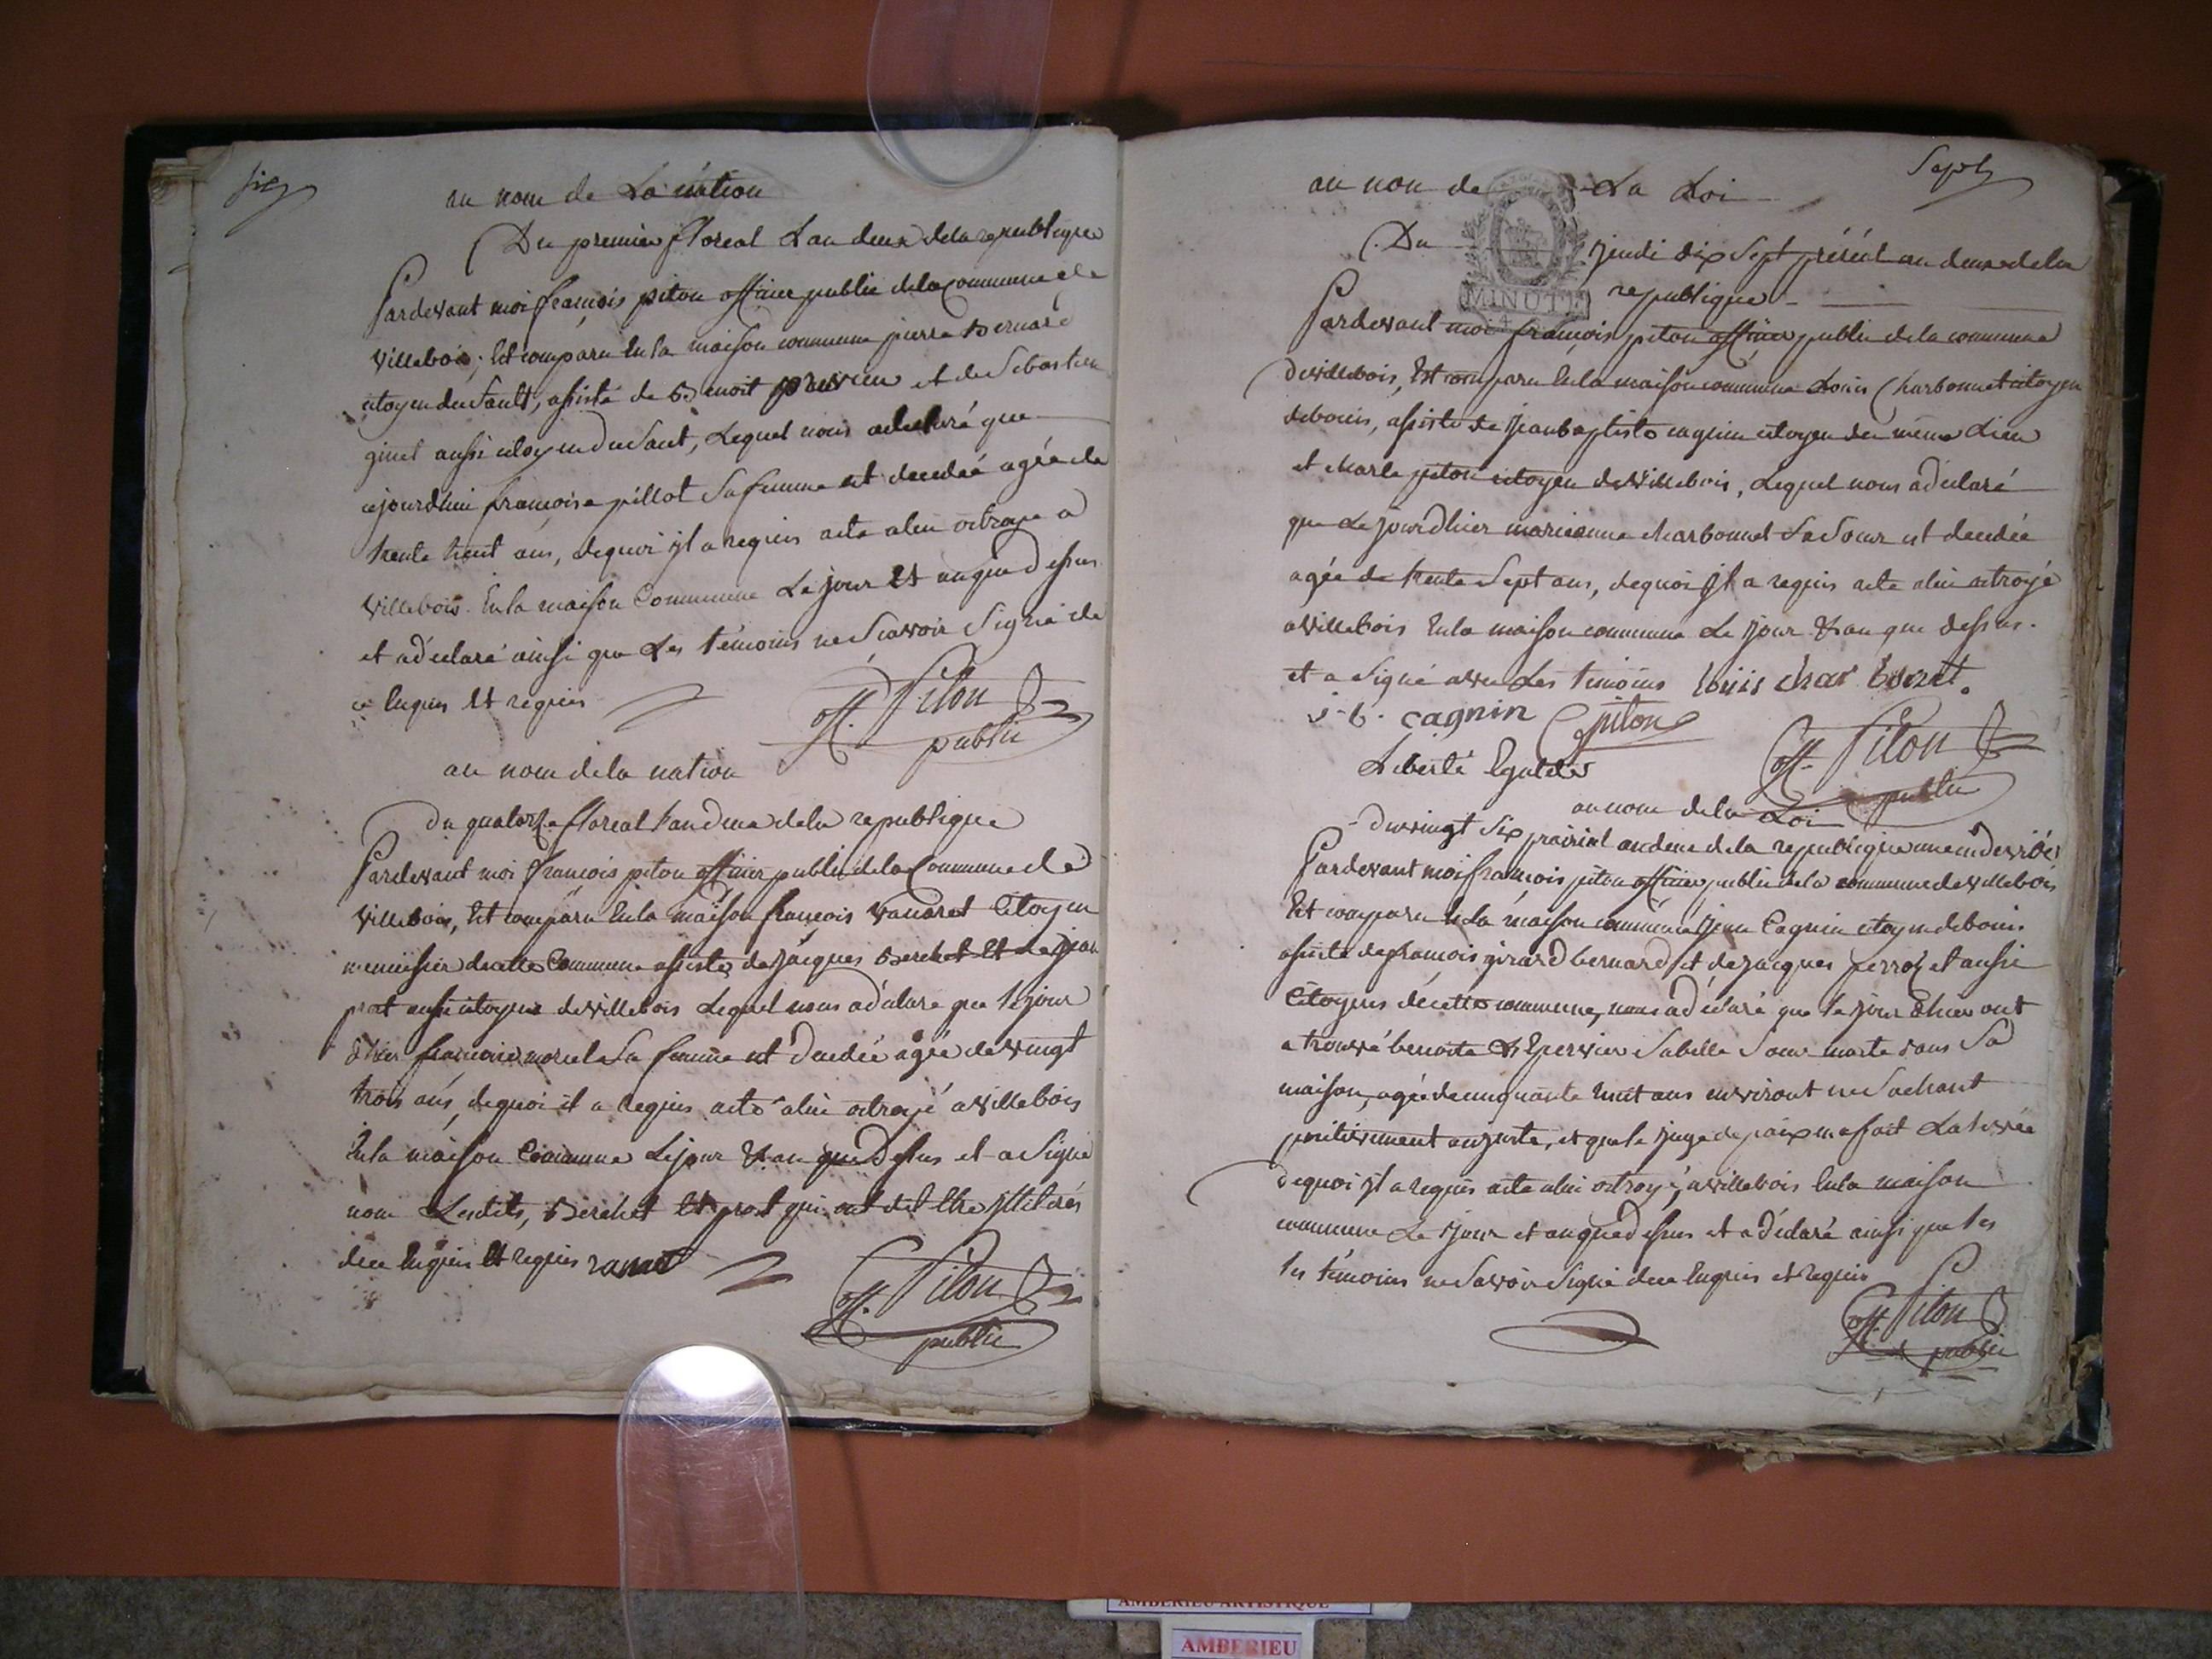 six
au nom de La nation
Du premier floreal L an deux dela republique
Pardevant moi françois piton officier public dela Commune de
villebois, Est comparu En la maison commune pierre Bernard
citoyen du Sault, assisté de Benoit et de Sebastien
ginet aussi citoyen du Saut, Lequel nous adeclaré que
cejourdhui françoise pillot Sa femme est decedée agée de
trente huit ans, dequoi jl a requis acte alui octroye a
villebois. En la maison Commune Le jour Et an que Dessus
et adéclaré ainsi que Les témoins ne Scavoir Signé de
ce Enquis Et requis
off. Piton
public
au nom dela nation
Du quatorze floreal L an deux dela republique
Pardevant moi françois piton officier public dela Commune de
villebois, Est comparu En la maison françois ravaret Citoyen
menuisier decette Commune assisté de jacques Berchet Et de jean
prost aussi citoyens de villebois Lequel nous adéclaré que le jour
d'hier françoise morel Sa femme est Decedée agée de vingt
trois ans, dequoi il a requis acte alui octroyé a villebois
En la maison Commune Le jour Et an que Dessus et a Signé
non Lesdits, Berchet Et prost qui ont dit Etre jlliterés
dece Enquis Et requis
off. Piton
public
Sept
au nom de La Loi
MINUTE
Du jeudi dix Sept prérial an deux dela
republique
Pardevant moi françois piton officier public dela commune
de villebois, Est comparu En la maison commune Louis Charbonnet citoyen
debouis, assisté de jean baptiste cagnin citoyen du même Lieu
et charle piton citoyen de villebois, Lequel nous adéclaré
que Le jour Dhier marieanne charbonnet Sa Soeur est decedée
agée de trente Sept ans, dequoi jl a requis acte alui octroyé
a villebois En la maison commune Le jour Et an que dessus.
et a Signé avec Les témoins louis char bonet.
j. b. cagnin C piton
off. Piton
public
Liberté Egalité
au nom dela Loi
Du vingt Six prairial an deux dela republique une indivisible
Pardevant moi françois piton officier public dela commune de villebois
Est comparu En La maison commune jean Cagnin citoyen debouis
assisté de françois girard bernard et de jacques perrozet aussi
Citoyens decette commune, nous adéclaré que le jour d'hier ont
a trouvé benoite Lepervier Sabelle Soeur morte dans Sa
maison, agée de cinquante huit ans environt ne Sachant
positivement au juste, et que le juge de paix en a fait La levée
dequoi jl a requis acte alui octroyé, a villebois En la maison
commune Le jour et an que dessus et a déclaré ainsi que les
les témoins ne Savoir Signé dece Enquis et requis
off. Piton
public
AMBERIEU ARTISTIQUE
AMBERIEU